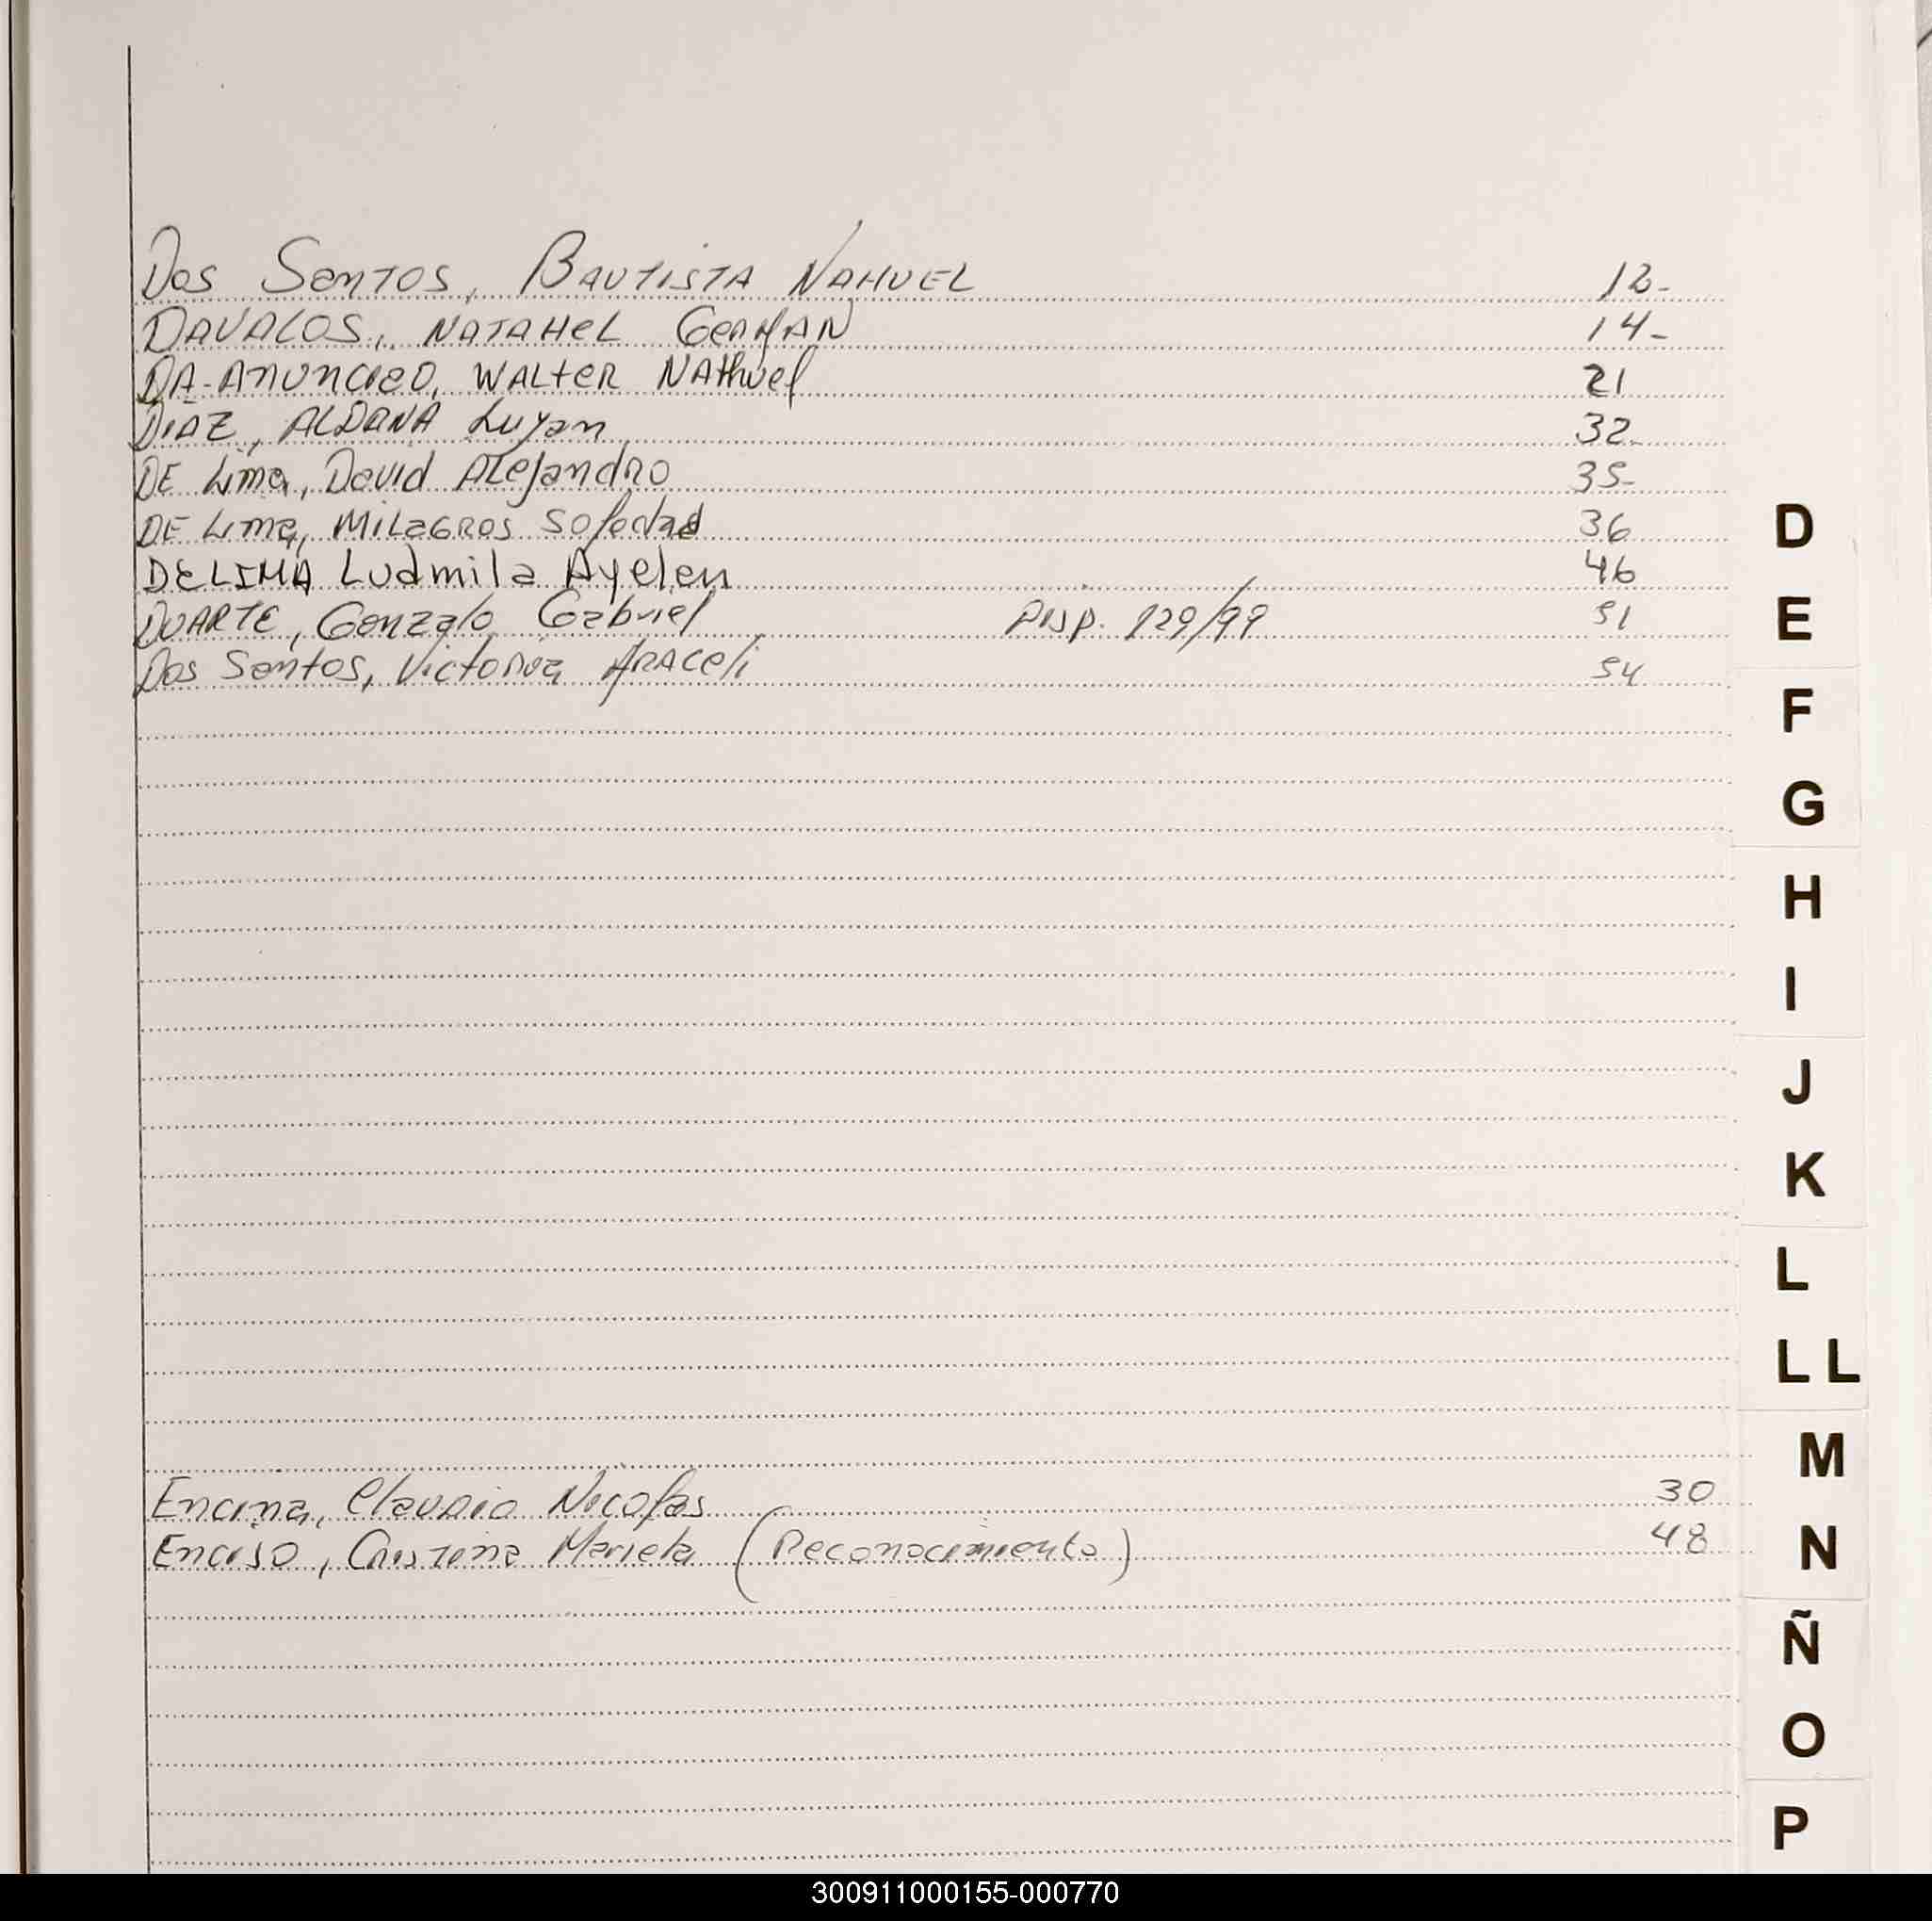 Dos Santos, Bautista Nahuel 12-
DAVALOS, NATAHeL GeRMAN 14-
DA-ANUNCIAO, WALteR NAthuel 21
DIAZ, ALDANA Luyan 32-
DE Lima, David Alejandro 35-
DE Lima, MILAGROS Soledad 36
DELIMA Ludmila Ayelen 46
DUARTE, Gonzalo Gabriel Disp. 129/99 51
Dos Santos, Victoria ARACeli 54
D
E
F
G
H
I
J
K
L
LL
M
Encina, Claudio Nicolas 30
Enciso, Cristina Mariela (Reconocimiento) 48
N
Ñ
O
P
300911000155-000770